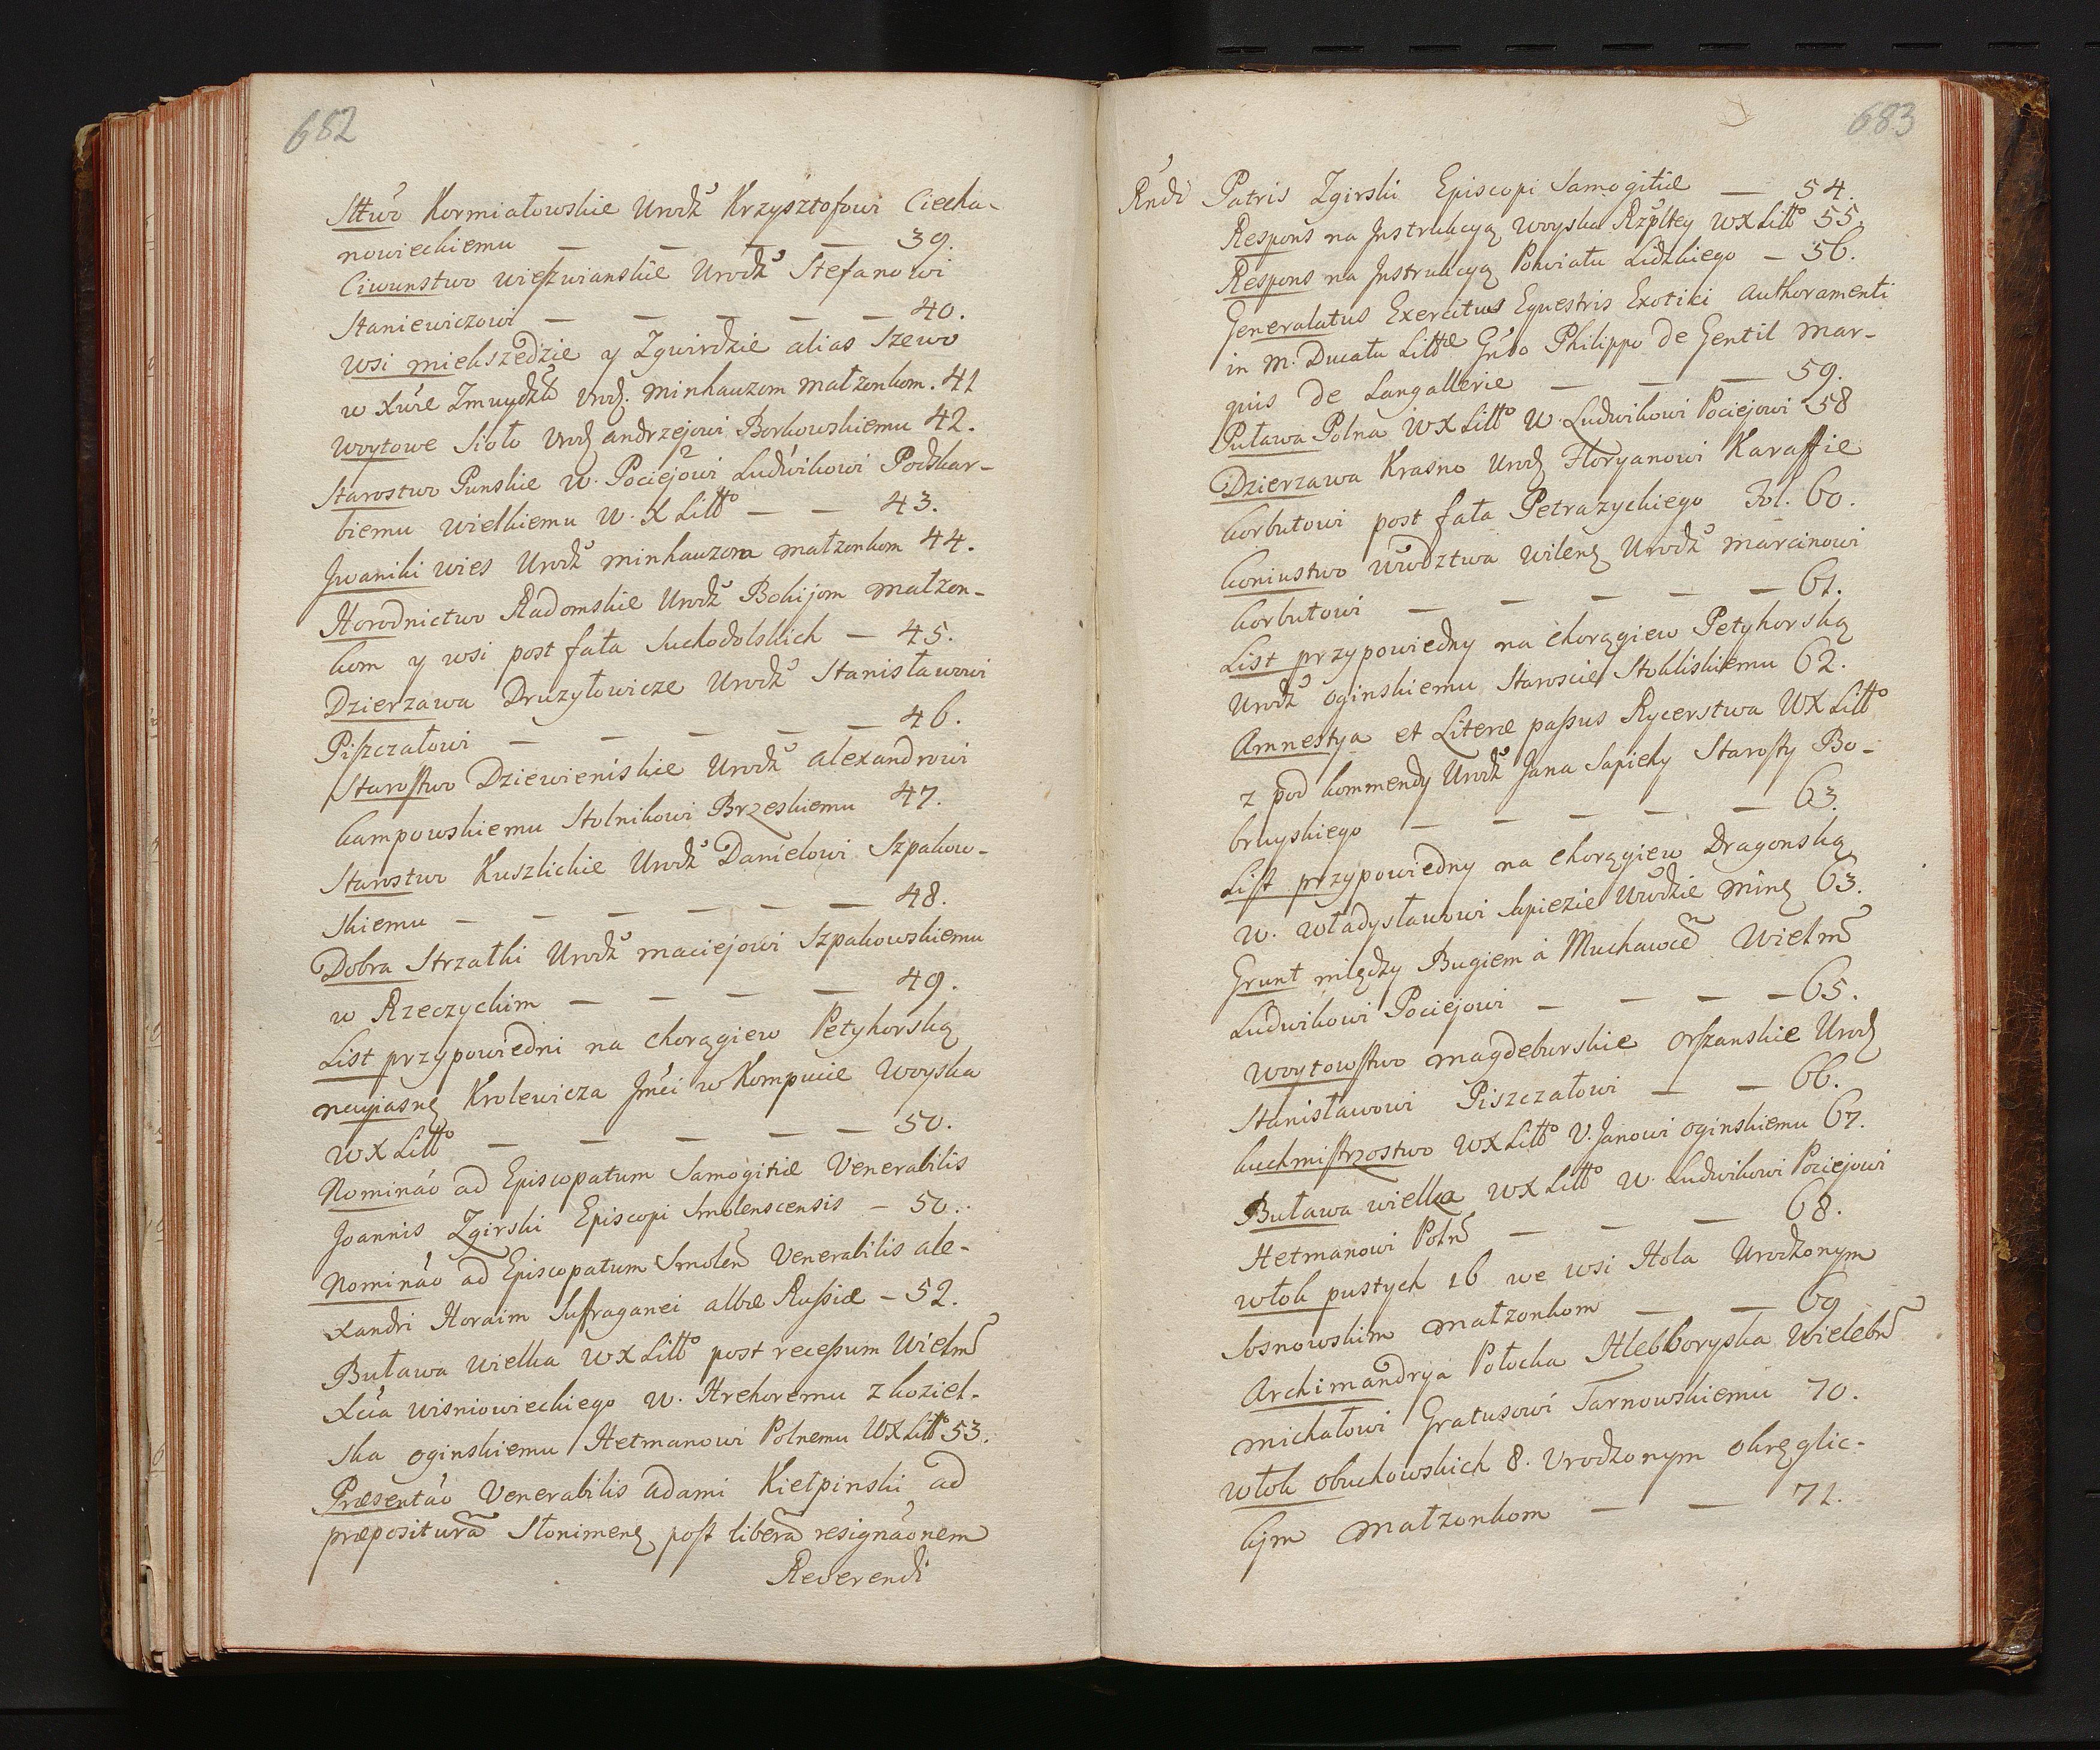 682
Sttwo Kormiałowskie Urodz Krzysztofowi Ciecha-
nowieckiemu — — — — 39.
Ciwunstwo wieszwianskie Urodz Stefanowi
Staniewiczowi — — — — — 40.
Wsi mielszedzie y Zgwirdzie alias Szewo
w Xie Zmuydz Urodz. Minhauzom małzonkom. 41
Woytowe Sioło Urodz andrzejowi Borkowskiemu 42.
Starostwo Punskie W. Pociejowi Ludwikowi Podskar-
biemu Wielkiemu W. X Litto — — 43.
Jwaniki wies Urodz minhauzom małzonkom 44.
Horodnictwo Radomskie Urodz Bokijom małzon-
kom y wsi post fata Suchodolskich — 45.
Dzierzawa Druzyłowicze Urodz Stanisławowi
Piszczałowi — — — — — 46.
Starostwo Dziewieniskie Urodz alexandrowi
Kampowskiemu Stolnikowi Brzeskiemu 47.
Starostwo Kuszlickie Urodz Danielowi Szpakow-
skiemu — — — — — — 48.
Dobra Strzałki Urodz maciejowi Szpakowskiemu
w Rzeczyckim — — — — 49.
List przypowiedni na chorągiew Petyhorską
nayiasnę Krolewicza Jmci w Kompucie Woyska
WX Litto — — — — — 50.
Nominao ad Episcopatum Samogitiæ Venerabilis
Joannis Zgirski Episcopi Smolenscensis — 50.
Nominao ad Episcopatum Smolen Venerabilis ale-
xandri Horaim Suffraganei albæ Russiæ — 52.
Buława Wielka WX Litto post recessum Wielm
Xcia wisniowieckiego W. Hrehoremu z koziel-
ska oginskiemu Hetmanowi Polnemu WX Litto 53.
Præsentao Venerabilis adami Kiełpinski ad
præposituram Słonimenę post liberam resignaonem
Reverendi
683
Rndi Patris Zgirski Episcopi Samogitiæ — 54.
Respons na Jnstrukcyą woyska Rzpltey WX Litto 55.
Respons na Jnstrukcyą Powiatu Lidzkiego — 56.
Generalatus Exercitus Equestris Exotici authoramenti
in M. Ducatu Littæ Gnso Philippo de Gentil Mar-
quis de Langallerie — — — 59.
Puława Polna WX Litto W Ludwikowi Pociejowi 58
Dzierzawa Krasno Urodz Floryanowi Karaffie
Korbutowi post fata Petrazyckiego Fol. 60.
Koniustwo Wwdztwa wilenę Urodz marcinowi
Korbutowi — — — — — 61.
List przypowiedny na chorągiew Petyhorską
Urodz oginskiemu Staroscie Stokliskiemu 62.
Amnestya et Literæ passus Rycerstwa WX Litto
z pod kommendy Urodz Jana Sapiehy Starosty Bo-
bruyskiego — — — — — 63.
List przypowiedny na chorągiew Dragonską
W. Władysławowi Sapiezie Wwodzie Minę 63.
Grunt między Bugiem á Muchawcem Wielm
Ludwikowi Pociejowi — — — — 65.
Woytowstwo magdeburskie orszanskie Urodz
Stanisławowi Piszczałowi — — 66.
Kuchmistrzostwo WX Litto V. Janowi oginskiemu 67.
Buława wielka WX Litto W. Ludwikowi Pociejowi
Hetmanowi Poln — — — 68.
Włok pustych 16 we wsi Hola Urodzonym
Sosnowskim małzonkom — — 69
Archimandrya Połocka Hleb Boryska Wielebn
michałowi Gratusowi Tarnowskiemu 70.
Włok obuchowskich 8. Urodzonym okręglic-
kjm małzonkom — — 71.